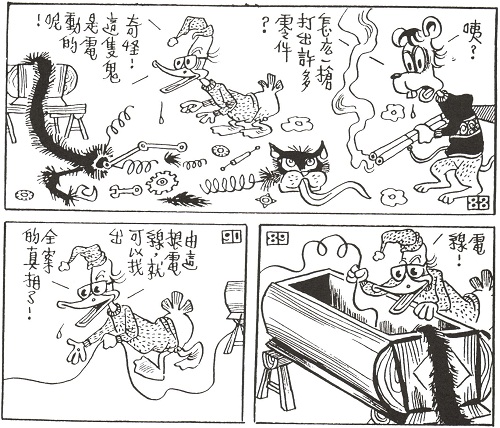 咦?
怎麼一槍
打出許多
零件
?
奇怪!
這隻鬼
是電
動的
呢!
88
電
線!
89
由這
根電
線,就
可以找
出
全案
的真相了!
91